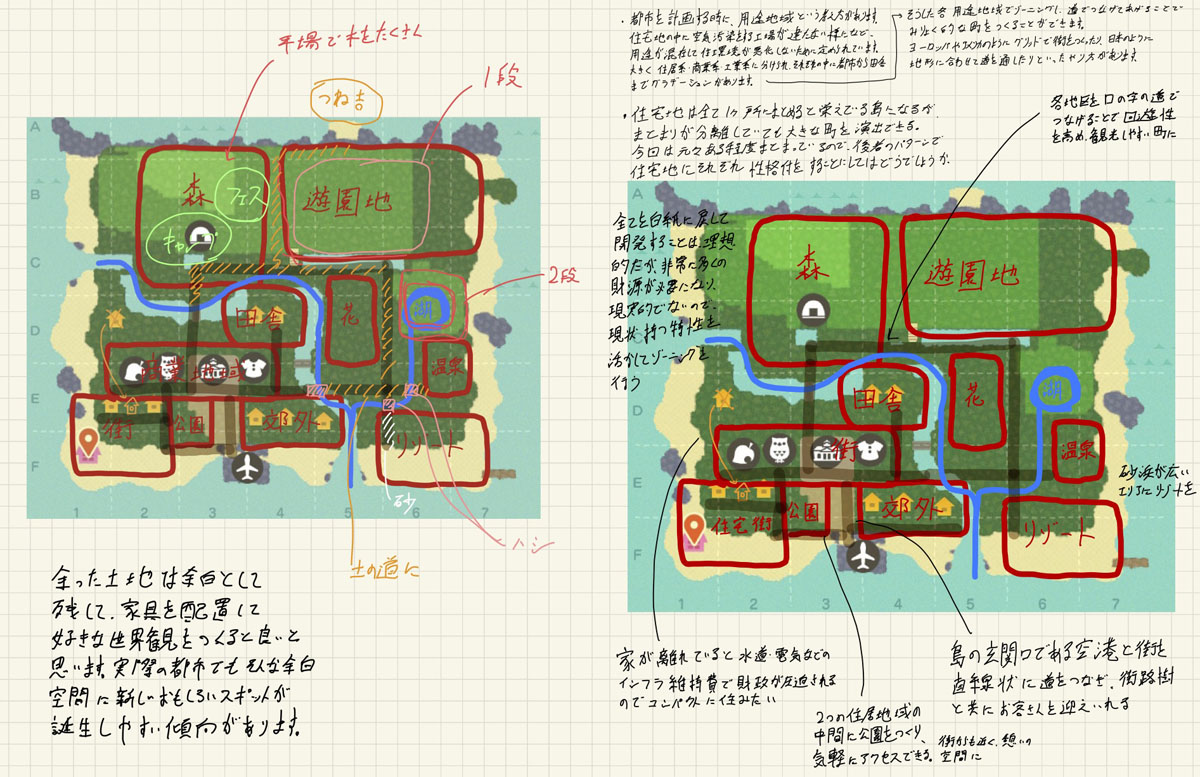 平場で木をたくさん
つね吉
1段
A
B
C
D
E
F
森
フェス
キャンプ
遊園地
2段
湖
田舎
花
温泉
街
公園
郊外
リゾート
砂
ハシ
土の道に
1
2
3
4
5
6
7
余った土地は余白として
残して、家具を配置して
好きな世界観をつくると良いと
思います。実際の都市でもそんな余白
空間に新しいおもしろいスポットが
誕生しやすい傾向があります。
・都市を計画する時に、用途地域という考え方があります。
住宅地の中に空気汚染する工場が建たない様になど、
用途が混在して住環境が悪化しないために定められています。
大きく住居系・商業系・工業系に分けられ、それぞれの中に都市から田舎
までグラデーションがあります。
そうした各用途地域でゾーニングし、道でつなげてあげることで
みりょく的な町をつくることができます。
ヨーロッパやアメリカのようにグリッドで街をつくったり、日本のように
地形に合わせて道を通したりといったやり方があります。
・住宅地は全て1ヶ所にまとめると栄えている島になるが、
まとまりが分離していても大きな町を演出できる。
今回は元々ある程度まとまっているので、後者のパターンで
住宅地にそれぞれ性格付をすることにしてはどうでしょうか。
各地区を口の字の道で
つなげることで回遊性
を高め、観光しやすい町に
全てを白紙に戻して
開発することは、理想
的だが、非常に多くの
財源が必要になり、
現実的でないので、
現状持つ特性を
活かしてゾーニングを
行う
A
D
E
F
森
遊園地
湖
田舎
花
温泉
街
住宅街
公園
郊外
リゾート
砂浜が広い
エリアにリゾートを
1
2
3
4
5
6
7
家が離れていると水道・電気などの
インフラ維持費で財政が圧迫される
のでコンパクトに住みたい
2つの住居地域の
中間に公園をつくり、
気軽にアクセスできる。
街からも近く、憩いの
空間に
島の玄関口である空港と街を
直線状に道をつなぎ、街路樹
と共にお客さんを迎えいれる